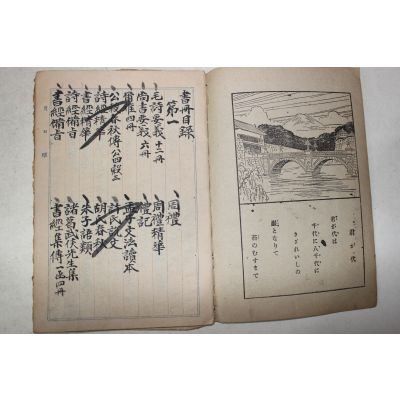 君が代
君が代は
千代に八千代に
さゞれいしの
巖となりて
苔のむすまで
書冊目録
第一
毛詩要義 十二冊
尚書要義 六冊
爾雅 四冊
春秋傳
詩經精華
書經精華
詩經備旨
書經備旨
周禮
周禮精華
禮記
孟子文法讀本
說文
胡春秋
朱子語類
諸葛武侯先生集
書經集傳 一函四冊